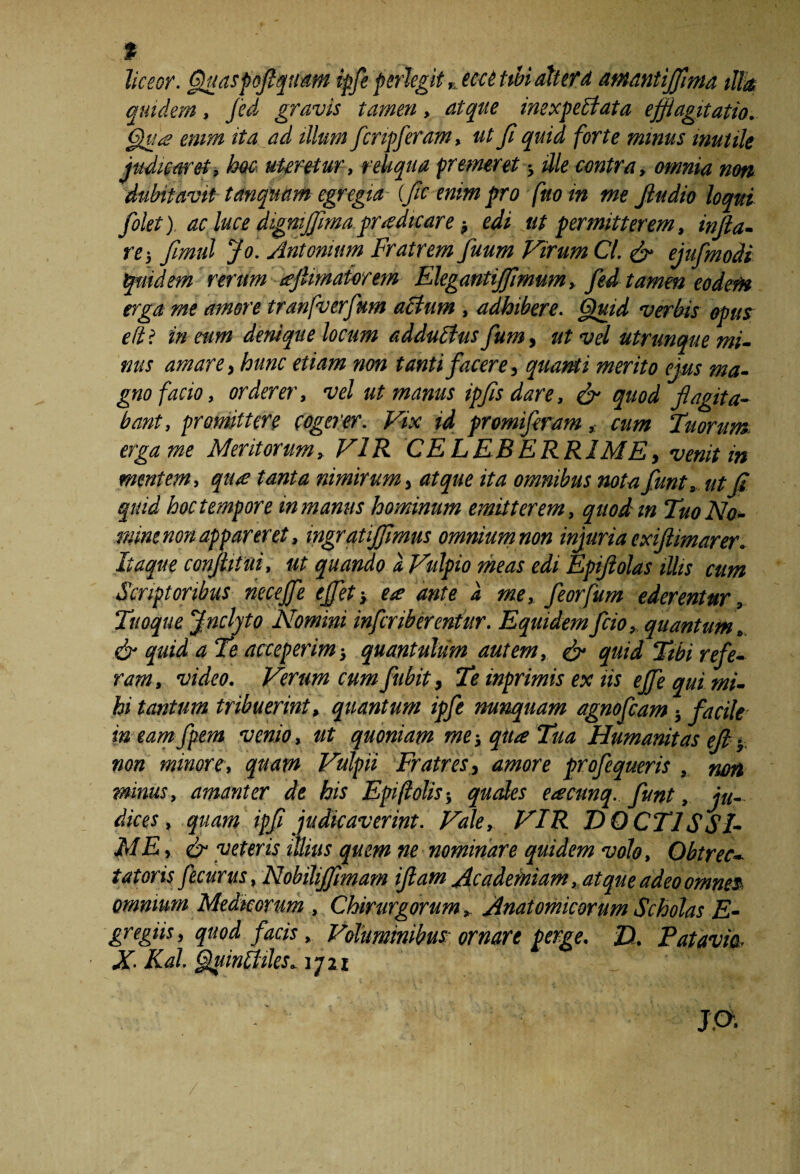 liceor. Quas poſtquam ipſe perlegit, ecce tibi altera amantiſſima illa
quidem, ſed gravis tamen, atque inexpectata efflagitatio.
Quæ enim ita ad illum ſcripſeram, ut ſi quid forte minus inutile
judicaret, hoc uteretur, reliqua premeret; ille contra, omnia non
dubitavit tanquam egregia (ſic enim pro ſuo in me ſtudio loqui
ſolet) ac luce digniſſima prædicare; edi ut permitterem, inſta-
re; ſimul Jo. Antonium Fratrem ſuum Virum Cl. & ejuſmodi
quidem rerum æſtimatorem Elegantiſſimum, ſed tamen eodem
erga me amore tranſverſum actum, adhibere. Quid verbis opus
eſt? in eum denique locum adductus ſum, ut vel utrunque mi-
nus amare, hunc etiam non tanti facere, quanti merito ejus ma-
gno facio, orderer, vel ut manus ipſis dare, & quod flagita-
bant, promittere cogerer. Vix id promiſeram, cum Tuorum
erga me Meritorum, VIR CELEBERRIME, venit in
mentem, quæ tanta nimirum, atque ita omnibus nota ſunt, ut ſi
quid hoc tempore in manus hominum emitterem, quod in Tuo No-
mine non appareret, ingratiſſimus omnium non injuria exiſtimarer.
Itaque conſtitui, ut quando à Vulpio meas edi Epiſtolas illis cum
Scriptoribus neceſſe eſſet; eæ ante à me, ſeorſum ederentur,
Tuoque Jnclyto Nomini inſcriberentur. Equidem ſcio, quantum,
& quid a Te acceperim; quantulùm autem, & quid Tibi refe-
ram, video. Verum cum ſubit, Te inprimis ex iis eſſe qui mi-
hi tantum tribuerint, quantum ipſe nunquam agnoſcam; facile
in eam ſpem venio, ut quoniam me; quæ Tua Humanitas eſt;
non minore, quam Vulpii Fratres, amore proſequeris, non
minus, amanter de his Epiſtolis; quales eæcunq. ſunt, ju-
dices, quam ipſi judicaverint. Vale, VIR DOCTISSI-
ME, & veteris illius quem ne nominare quidem volo, Obtrec-
tatoris ſecurus, Nobiliſſimam iſtam Academiam, atque adeo omnes
omnium Medicorum, Chirurgorum, Anatomicorum Scholas E-
gregiis, quod facis, Voluminibus ornare perge. D. Patavio
X. Kal. Quinctiles. 1721
JO.